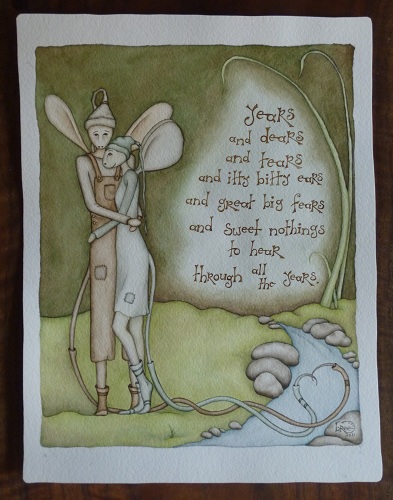 years
and dears
and tears
and itty bitty ears
and great big fears
and sweet nothings
to hear
through all
the years.